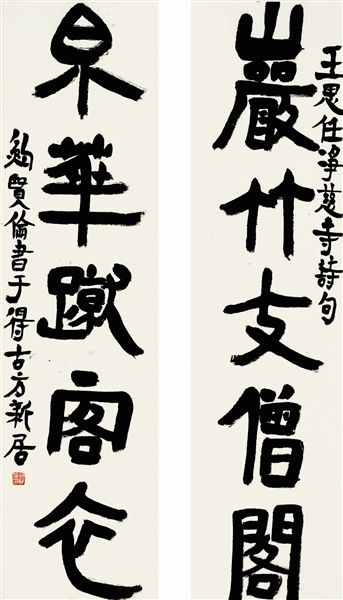 王思任淨慈寺詩句
巖竹支僧閣
泉華蹴客衣
鮑賢倫書于得古方新居